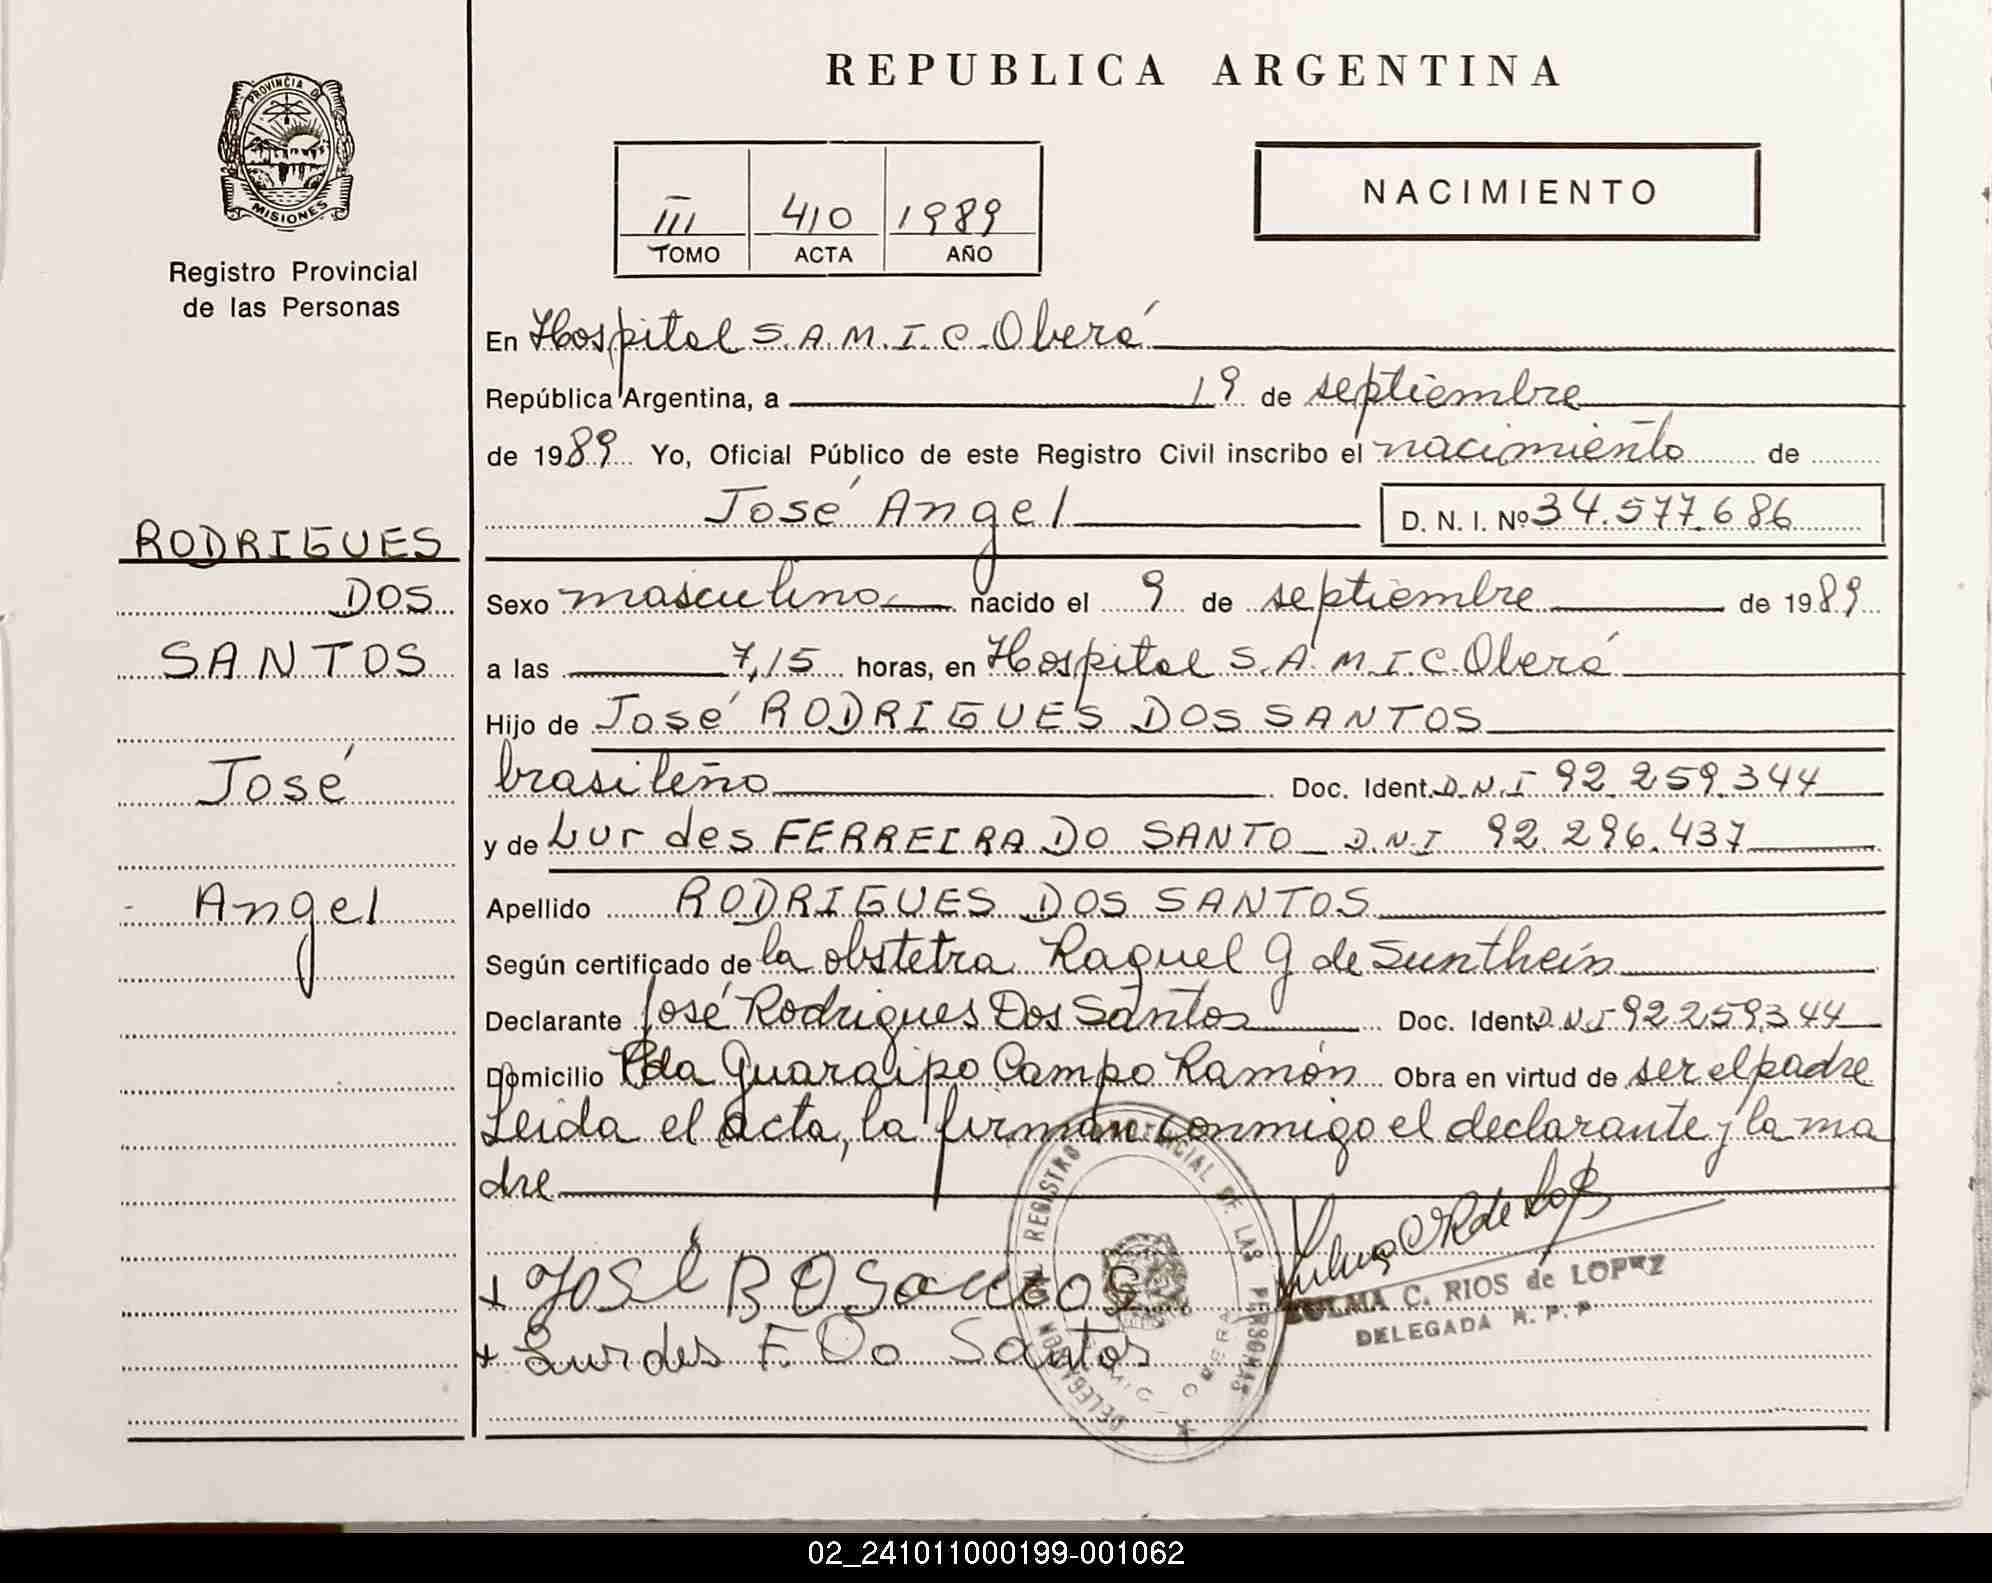 REPUBLICA ARGENTINA
PROVINCIA DE
MISIONES
Registro Provincial
de las Personas
III 410 1989
TOMO ACTA AÑO
NACIMIENTO
En Hospital S.A.M.I.C. Oberá
República Argentina, a 19 de septiembre
de 1989 Yo, Oficial Público de este Registro Civil inscribo el nacimiento de
José Angel D. N. I. Nº 34.577.686
RODRIGUES
DOS
SANTOS
José
Angel
Sexo masculino nacido el 9 de septiembre de 1989
a las 7,15 horas, en Hospital S.A.M.I.C. Oberá
Hijo de José RODRIGUES DOS SANTOS
brasileño Doc. Ident. D.N.I 92.259.344
y de Lurdes FERREIRA DO SANTO D.N.I 92.296.437
Apellido RODRIGUES DOS SANTOS
Según certificado de la obstetra Raquel G de Sunthein
Declarante José Rodrigues Dos Santos Doc. Ident. D.N.I 92.259.344
Domicilio Pda Guaraipo Campo Ramón Obra en virtud de ser el padre
Leida el acta, la firman conmigo el declarante y la ma
dre
+ José Santos
+ Lurdes F. Do Santos
DELEGACION REGISTRO PROVINCIAL DE LAS PERSONAS
OBERA
ZULMA C. RIOS de LOPEZ
DELEGADA R. P. P.
02_241011000199-001062